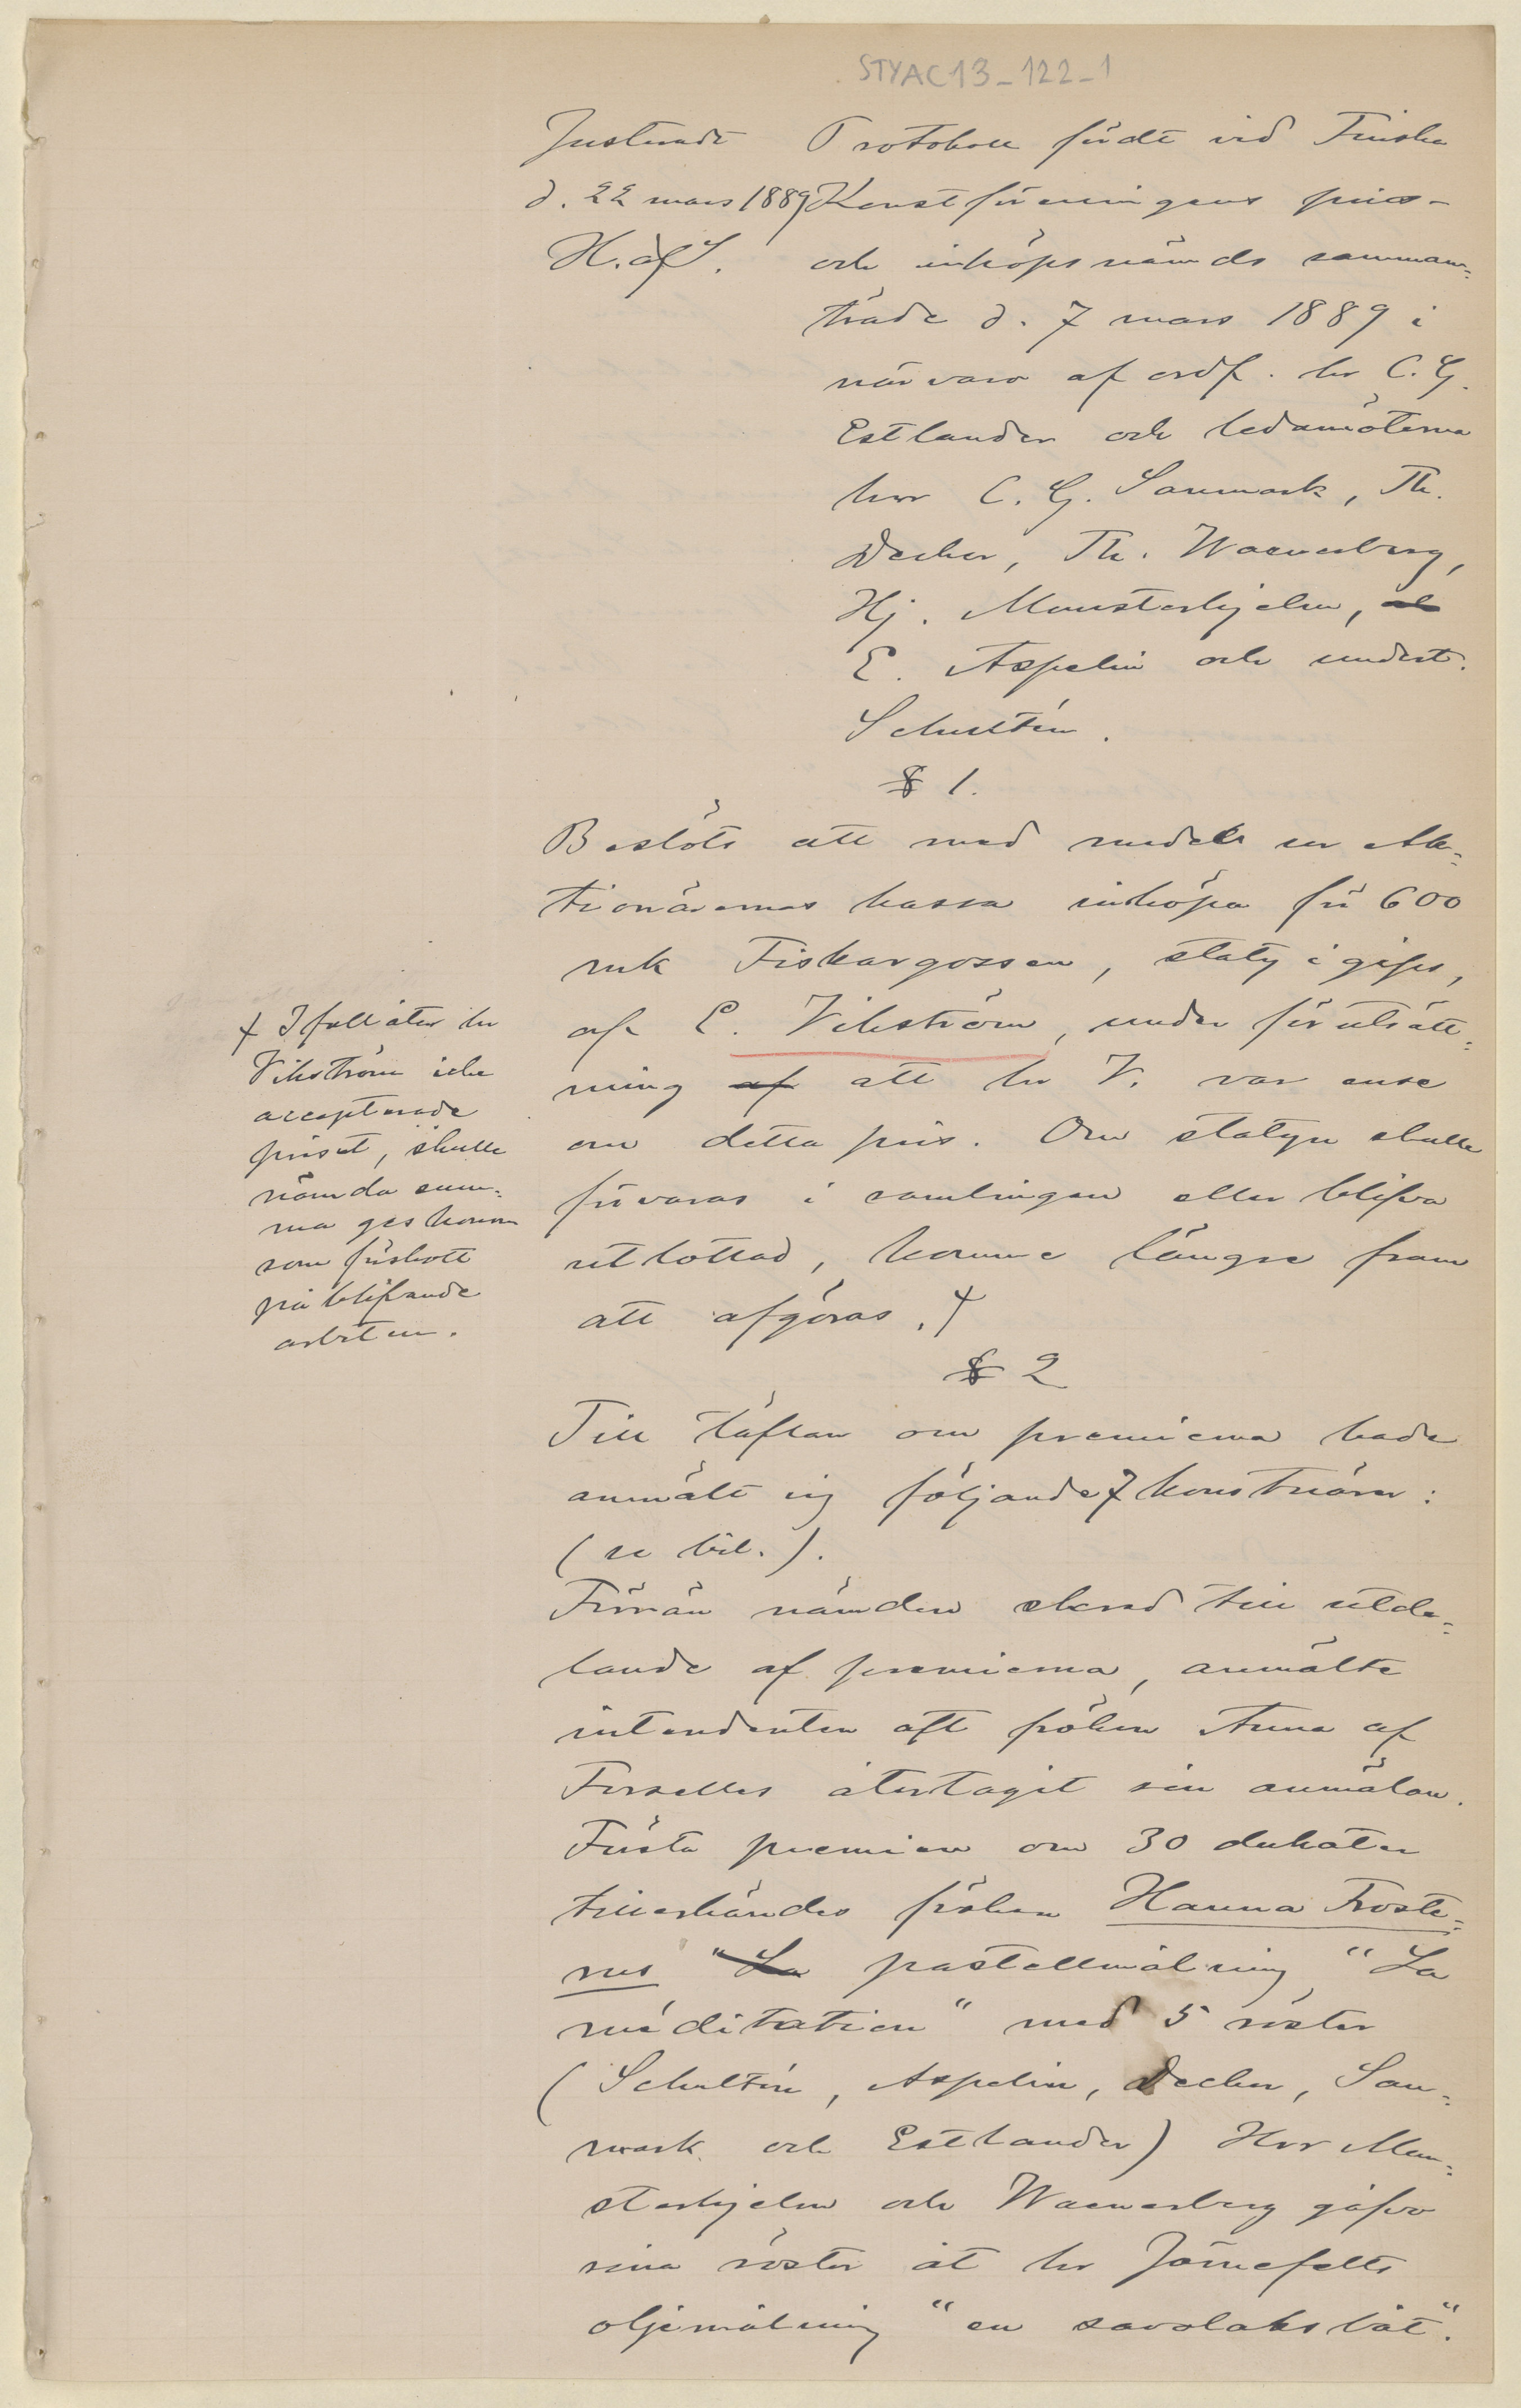 STYAC13_122_1
Justerade
d. 22 mars 1889
H. af S.
Protokoll fördt vid Finska
Konstföreningens pris-
och inköpsnämnds samman-
träde d. 7 mars 1889 i
närvaro af ordf. hr C. G.
Estlander och ledamöterna
hrr C. G. Sanmark, Th.
Decker, Th. Waenerberg,
Hj. Munsterhjelm,
E. Aspelin och undert.
Schultén.
§ 1.
Beslöts att med medel ur Ak-
tionärernas kassa inköpa för 600
mk Fiskargossen, staty i gips,
af E. Vikström, under förutsätt-
ning af att hr V. var ense
om detta pris. Om statyn skulle
förvaras i samlingen eller blifva
utlottad, komme längre fram
att afgöras. +
+ I fall åter hr
Vikström icke
accepterade
priset, skulle
nämda sum-
ma ges honom
som förskott
på blifvande
arbeten.
§ 2
Till täflan om premierna hade
anmält sig följande 7 konstnärer:
(se bil.).
Förrän nämden skred till utde-
lande af premierna, anmälte
intendenten att fröken Anna af
Forselles återtagit sin anmälan.
Första premien om 30 dukater
tillerkändes fröken Hanna Froste-
rus "La pastellmålning "La
méditation" med 5 röster
(Schultén, Aspelin, Decker, San-
mark och Estlander) Hrr Mun-
sterhjelm och Waenerberg gåfvo
sina röster åt hr Järnefelts
oljemålning "en savolaksbåt".